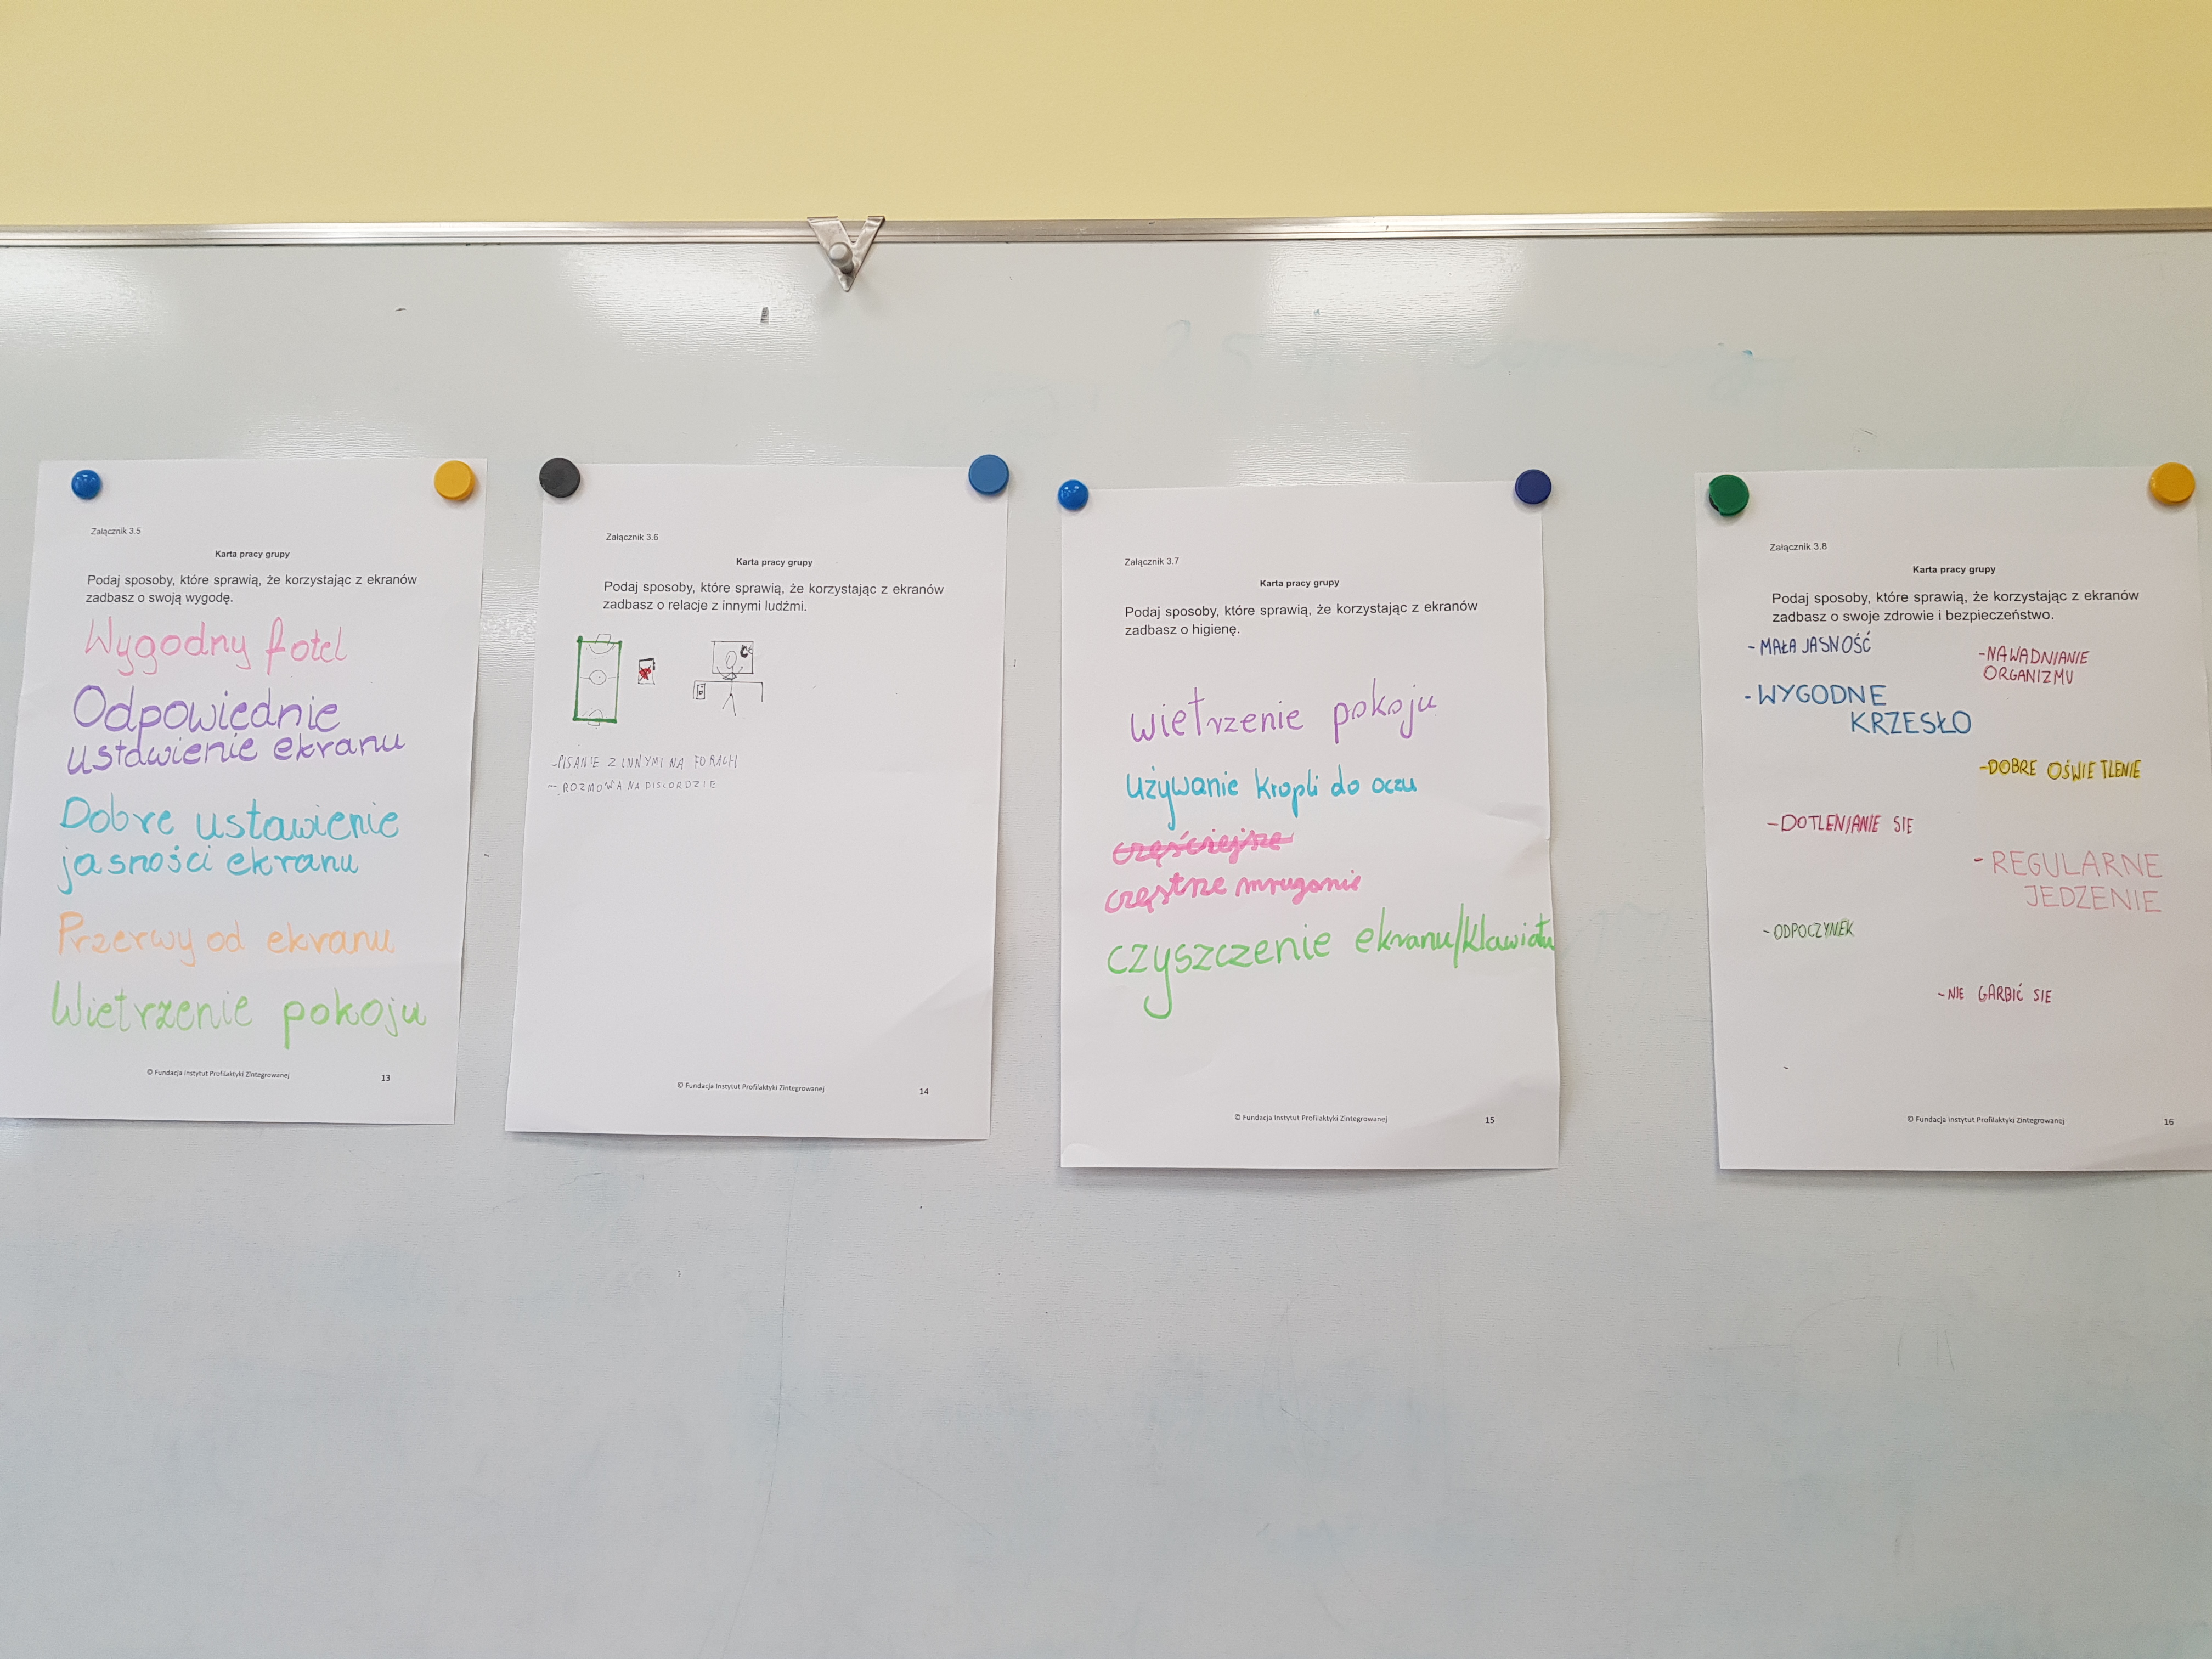 Załącznik 3.5
Karta pracy grupy
Podaj sposoby, które sprawią, że korzystając z ekranów
zadbasz o swoją wygodę.
Wygodny fotel
Odpowiednie
ustawienie ekranu
Dobre ustawienie
jasności ekranu
Przerwy od ekranu
Wietrzenie pokoju
© Fundacja Instytut Profilaktyki Zintegrowanej
13
Załącznik 3.6
Karta pracy grupy
Podaj sposoby, które sprawią, że korzystając z ekranów
zadbasz o relacje z innymi ludźmi.
-PISANIE Z INNYMI NA FORACH
- ROZMOWA NA DISCORDZIE
© Fundacja Instytut Profilaktyki Zintegrowanej
14
Załącznik 3.7
Karta pracy grupy
Podaj sposoby, które sprawią, że korzystając z ekranów
zadbasz o higienę.
wietrzenie pokoju
używanie kropli do oczu
częściejsze
częstne mruganie
czyszczenie ekranu/klawiatu
© Fundacja Instytut Profilaktyki Zintegrowanej
15
Załącznik 3.8
Karta pracy grupy
Podaj sposoby, które sprawią, że korzystając z ekranów
zadbasz o swoje zdrowie i bezpieczeństwo.
- MAŁA JASNOŚĆ
-NAWADNIANIE
ORGANIZMU
-WYGODNE
KRZESŁO
-DOBRE OŚWIETLENIE
-DOTLENIANIE SIE
- REGULARNE
JEDZENIE
-ODPOCZYNEK
-NIE GARBIĆ SIE
© Fundacja Instytut Profilaktyki Zintegrowanej
16